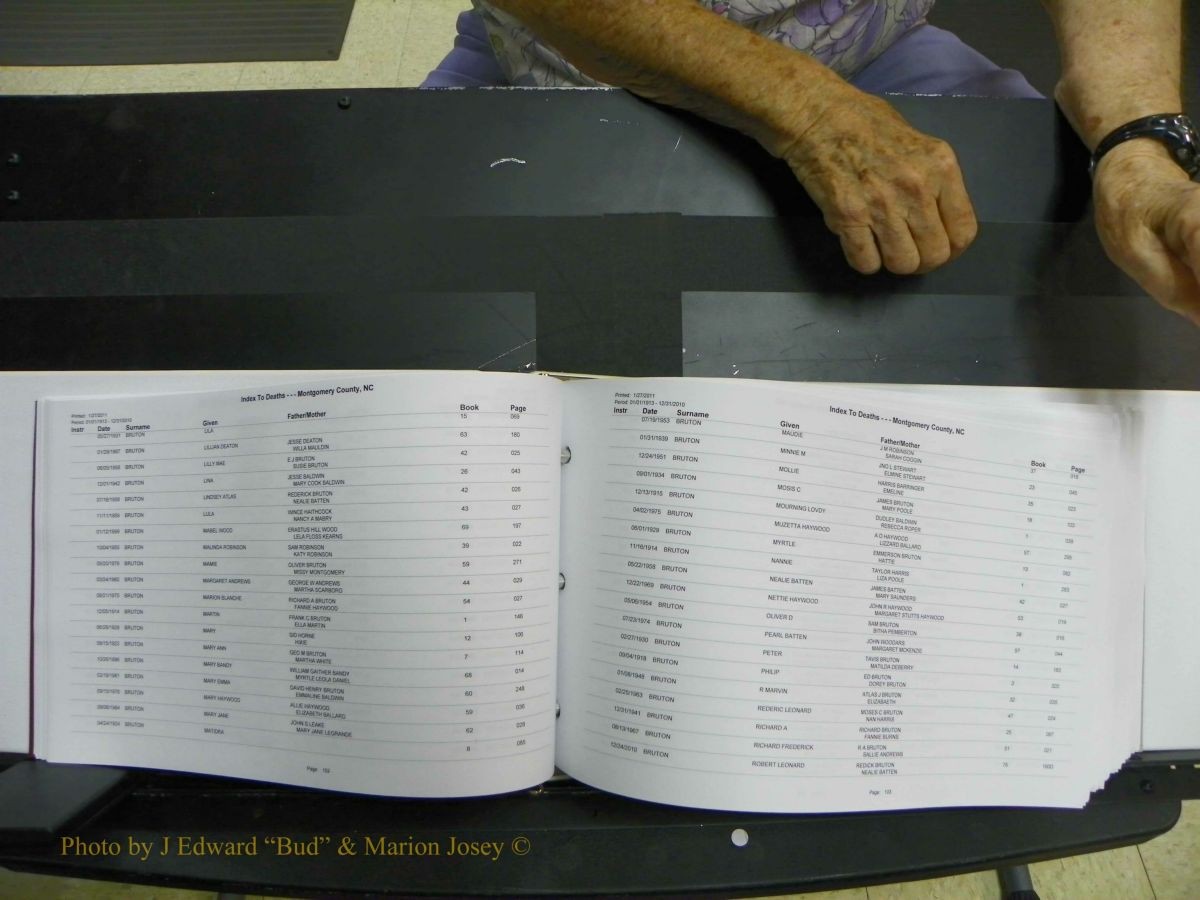 Index To Deaths - - - Montgomery County, NC
Printed: 1/27/2011
Period: 01/01/1913 - 12/31/2010
Instr Date Surname Given Father/Mother Book Page
BRUTON LILA 15 069
BRUTON LILLIAN DEATON JESSE DEATON 63 180
WILLA MAULDIN
BRUTON LILLY MAE E J BRUTON 42 025
SUSIE BRUTON
BRUTON LINA JESSE BALDWIN 26 043
MARY COOK BALDWIN
BRUTON LINDSEY ATLAS REDERICK BRUTON 42 026
NEALIE BATTEN
BRUTON LULA WINCE HAITHCOCK 43 027
NANCY A MABRY
BRUTON MABEL WOOD ERASTUS HILL WOOD 69 197
LELA FLOSS KEARNS
BRUTON MALINDA ROBINSON SAM ROBINSON 39 022
KATY ROBINSON
BRUTON MAMIE OLIVER BRUTON 59 271
MISSY MONTGOMERY
BRUTON MARGARET ANDREWS GEORGE W ANDREWS 44 029
MARTHA SCARBORO
BRUTON MARION BLANCHE RICHARD A BRUTON 54 027
FANNIE HAYWOOD
BRUTON MARTIN FRANK C BRUTON 1 146
ELLA MARTIN
BRUTON MARY SID HORNE 12 106
HIXIE
BRUTON MARY ANN GEO M BRUTON 7 114
MARTHA WHITE
BRUTON MARY BANDY WILLIAM GAITHER BANDY 68 014
MYRTLE LEOLA DANIEL
BRUTON MARY EMMA DAVID HENRY BRUTON 60 248
EMMALINE BALDWIN
BRUTON MARY HAYWOOD ALLIE HAYWOOD 59 036
ELIZABETH BALLARD
BRUTON MARY JANE JOHN S LEAKE 62 028
MARY JANE LEGRANDE
BRUTON MATIDRA 8 085
Page: 102
Printed: 1/27/2011
Period: 01/01/1913 - 12/31/2010
Index To Deaths - - - Montgomery County, NC
Instr Date Surname Given Father/Mother Book Page
07/19/1953 BRUTON MAUDIE J M ROBINSON 37 018
SARAH COGGIN
01/31/1939 BRUTON MINNIE M JNO L STEWART 23 045
ELMINE STEWART
12/24/1951 BRUTON MOLLIE HARRIS BARRINGER 35 023
EMELINE
09/01/1934 BRUTON MOSIS C JAMES BRUTON 18
MARY POOLE
12/13/1915 BRUTON MOURNING LOVDY DUDLEY BALDWIN 1
REBECCA ROPER
04/02/1975 BRUTON MUZETTA HAYWOOD A D HAYWOOD 57
LIZZARD BALLARD
06/01/1929 BRUTON MYRTLE EMMERSON BRUTON 13 062
HATTIE
11/16/1914 BRUTON NANNIE TAYLOR HARRIS 1
LIZA POOLE
05/22/1958 BRUTON NEALIE BATTEN JAMES BATTEN 42 027
MARY SAUNDERS
12/22/1969 BRUTON NETTIE HAYWOOD JOHN R HAYWOOD 53 019
MARGARET STUTTS HAYWOOD
05/06/1954 BRUTON OLIVER D SAM BRUTON 38 016
BITHA PEMBERTON
07/23/1974 BRUTON PEARL BATTEN JOHN WOODARS 57 044
MARGARET MCKENZIE
02/27/1930 BRUTON PETER TAVIS BRUTON 14
MATILDA DEBERRY
09/04/1918 BRUTON PHILIP ED BRUTON
DOREY BRUTON
01/08/1948 BRUTON R MARVIN ATLAS J BRUTON 32
ELIZABAETH
02/25/1963 BRUTON REDERIC LEONARD MOSES C BRUTON 47 024
NAN HARRIS
12/31/1941 BRUTON RICHARD A RICHARD BRUTON 25 087
FANNIE BURNS
08/13/1967 BRUTON RICHARD FREDERICK R A BRUTON 51 021
SALLIE ANDREWS
12/24/2010 BRUTON ROBERT LEONARD REDICK BRUTON 75
NEALIE BATTEN
Page: 103
Photo by J Edward “Bud” & Marion Josey ©